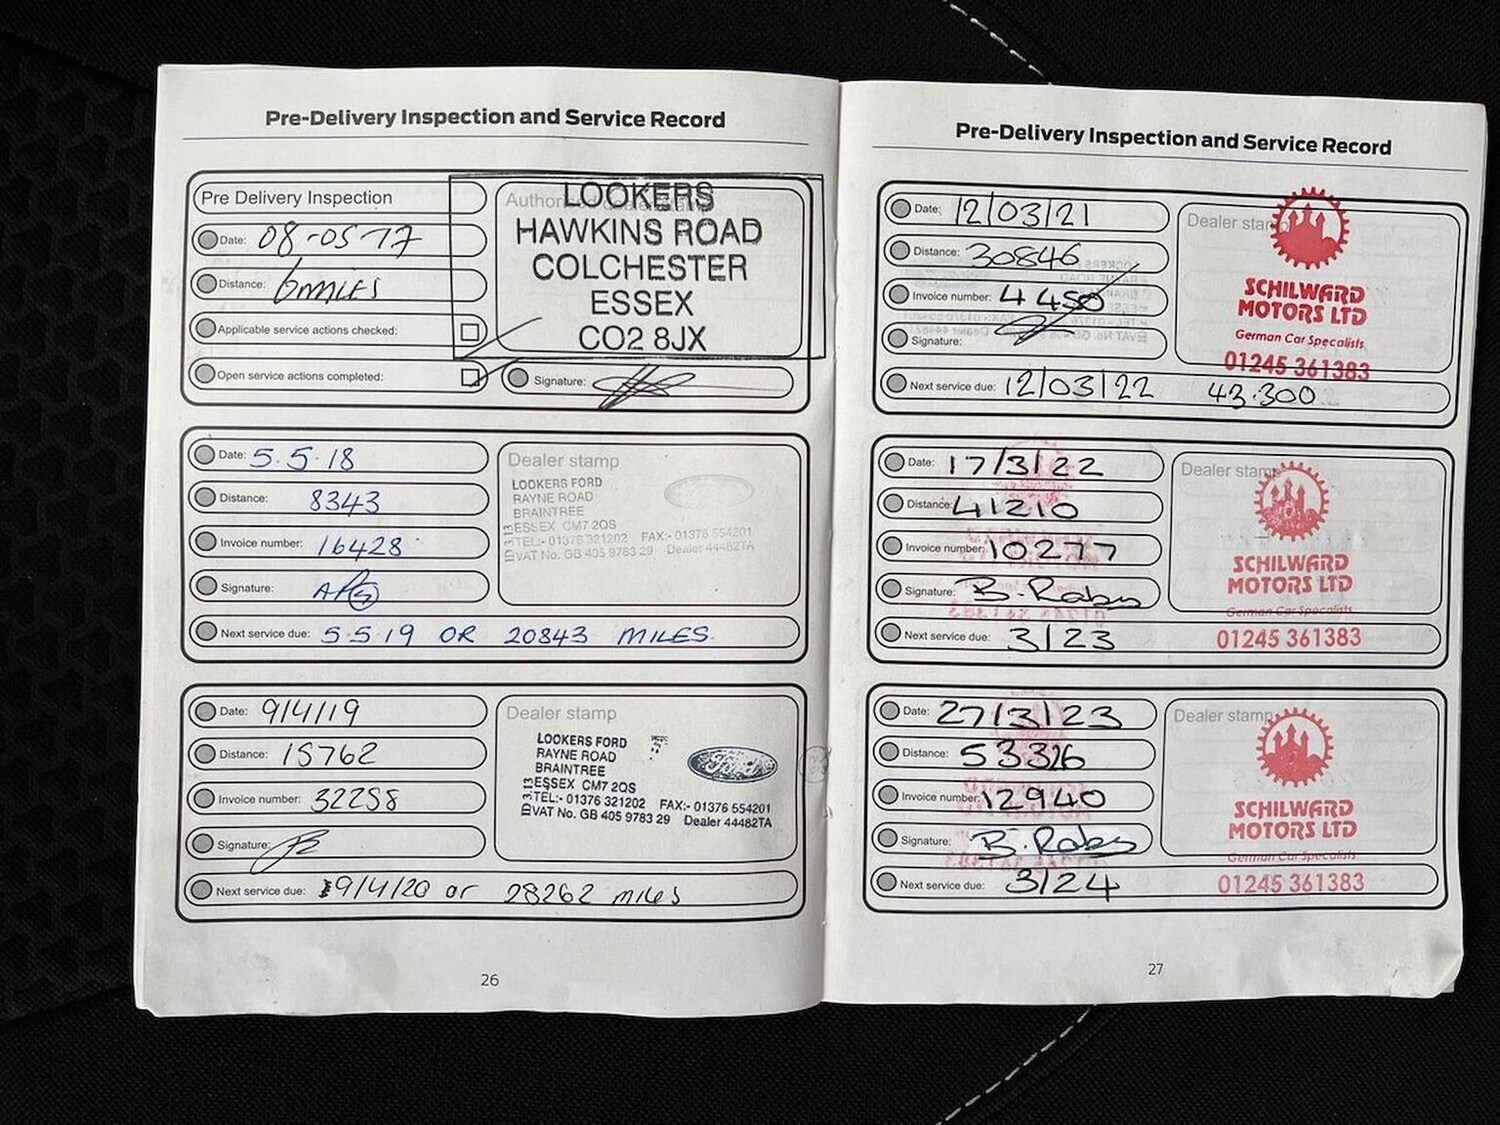 Pre-Delivery Inspection and Service Record
Pre Delivery Inspection
Date: 08-05-17
Distance: 6 MILES
Applicable service actions checked:
Open service actions completed:
Authorised dealer stamp
LOOKERS
HAWKINS ROAD
COLCHESTER
ESSEX
CO2 8JX
Signature:
Date: 5.5.18
Distance: 8343
Invoice number: 16428
Signature:
Next service due: 5.5.19 OR 20843 MILES.
Dealer stamp
LOOKERS FORD
RAYNE ROAD
BRAINTREE
ESSEX CM7 2QS
TEL:- 01376 321202 FAX:- 01376 554201
VAT No. GB 405 9783 29 Dealer 44482TA
Date: 9/4/19
Distance: 15762
Invoice number: 32258
Signature:
Next service due: 9/4/20 or 28262 miles
Dealer stamp
LOOKERS FORD
RAYNE ROAD
BRAINTREE
ESSEX CM7 2QS
TEL:- 01376 321202 FAX:- 01376 554201
VAT No. GB 405 9783 29 Dealer 44482TA
Ford
26
Pre-Delivery Inspection and Service Record
Date: 12/03/21
Distance: 30846
Invoice number: 4450
Signature:
Next service due: 12/03/22 43.300
Dealer stamp
SCHILWARD
MOTORS LTD
German Car Specalists
01245 361383
Date: 17/3/22
Distance: 41210
Invoice number: 10277
Signature: B. Raby
Next service due: 3/23
Dealer stamp
SCHILWARD
MOTORS LTD
German Car Specalists
01245 361383
Date: 27/3/23
Distance: 53326
Invoice number: 12940
Signature: B. Raby
Next service due: 3/24
Dealer stamp
SCHILWARD
MOTORS LTD
German Car Specalists
01245 361383
27